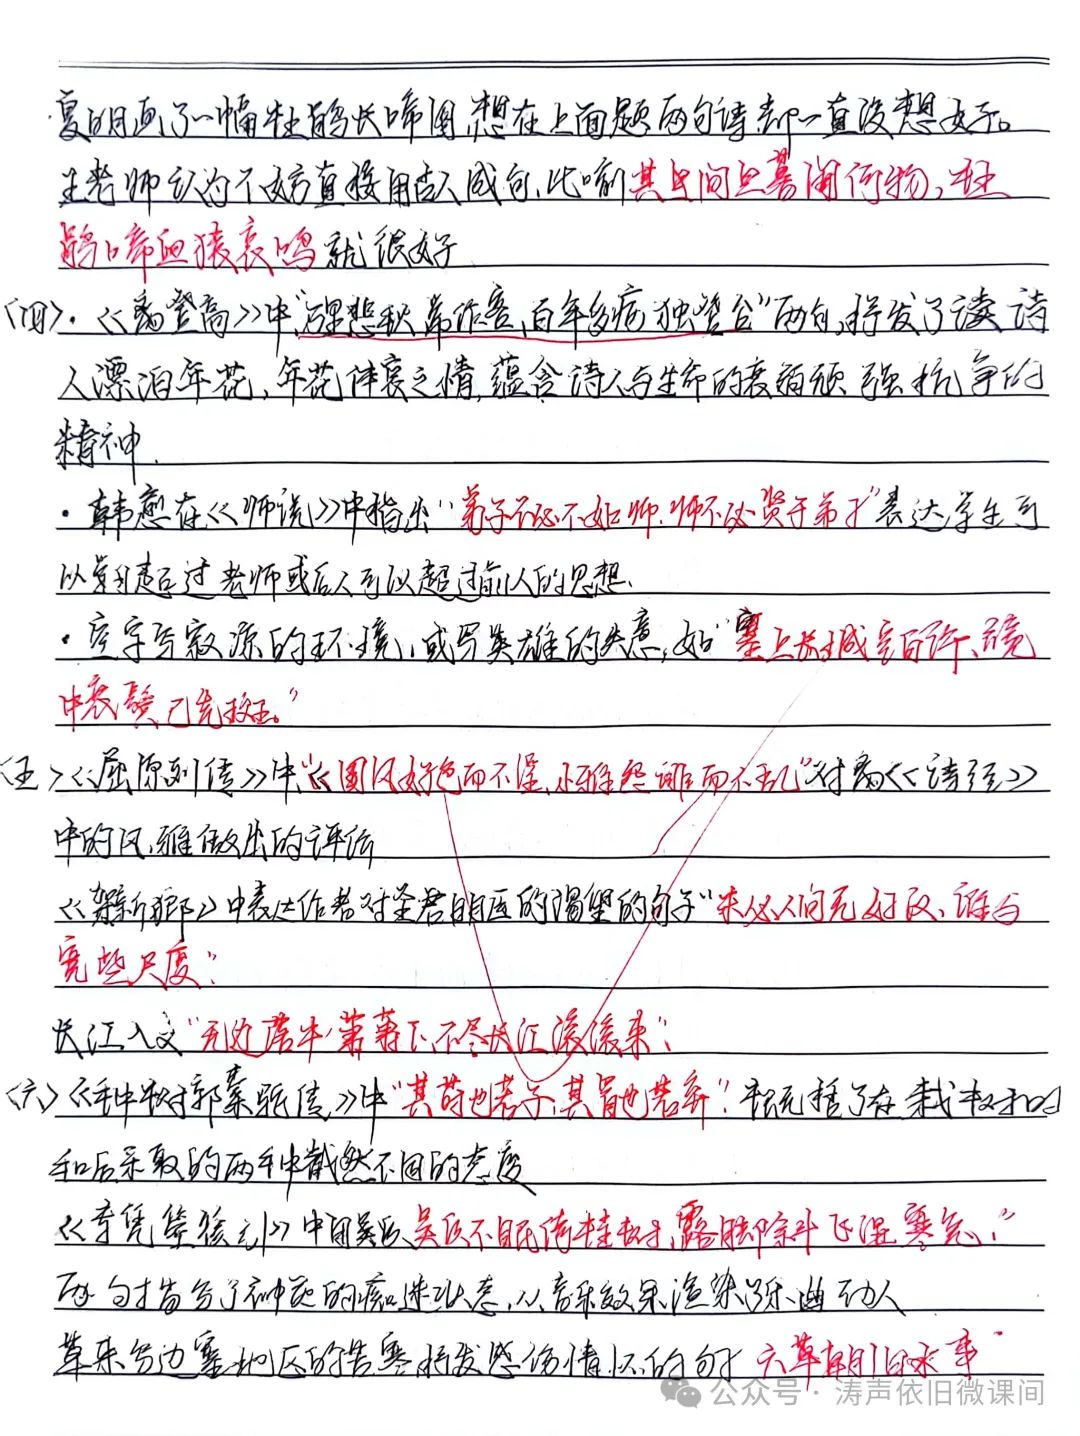 夏明画了一幅杜鹃长啼图,想在上面题两句诗,却一直没想好。
王老师认为不妨直接用古人成句,比喻其间旦暮闻何物,杜
鹃啼血猿哀鸣就很好
〈四〉·《登高》中,"悲秋常作客,百年多病独登台"两句,抒发了诗
人漂泊年花,年花体衰之情,蕴含诗人与生命的衰颓顽强抗争的
精神.
·韩愈在《师说》中指出"弟子不必不如师,师不必贤于弟子"表达学生可
以超过老师或后人可以超过前人的思想.
·的环境,或写英雄的失意,如"塞上长城空自许,镜
中衰鬓已先斑。"
〈五〉《屈原列传》中,"《国风好色而不淫,小雅怨诽而不乱"对《诗经》
中的风、雅做出的评价
《》中表达作者对圣君的渴望的句子"未必人间无好汉、谁与
宽些尺度"
长江入文"无边落木萧萧下,不尽长江滚滚来"
〈六〉《种树郭橐驼传》中"其莳也若子,其置也若弃"概括了在栽树时
和后采取的两种截然不同的态度
《李凭箜篌引》中用吴质吴质不眠倚桂树,露脚斜飞湿寒兔"
两句描写了的痴迷状态,从音乐效果渲染了乐曲动人
草来写边塞地区的苦寒抒发感伤情怀的句
公众号·涛声依旧微课间